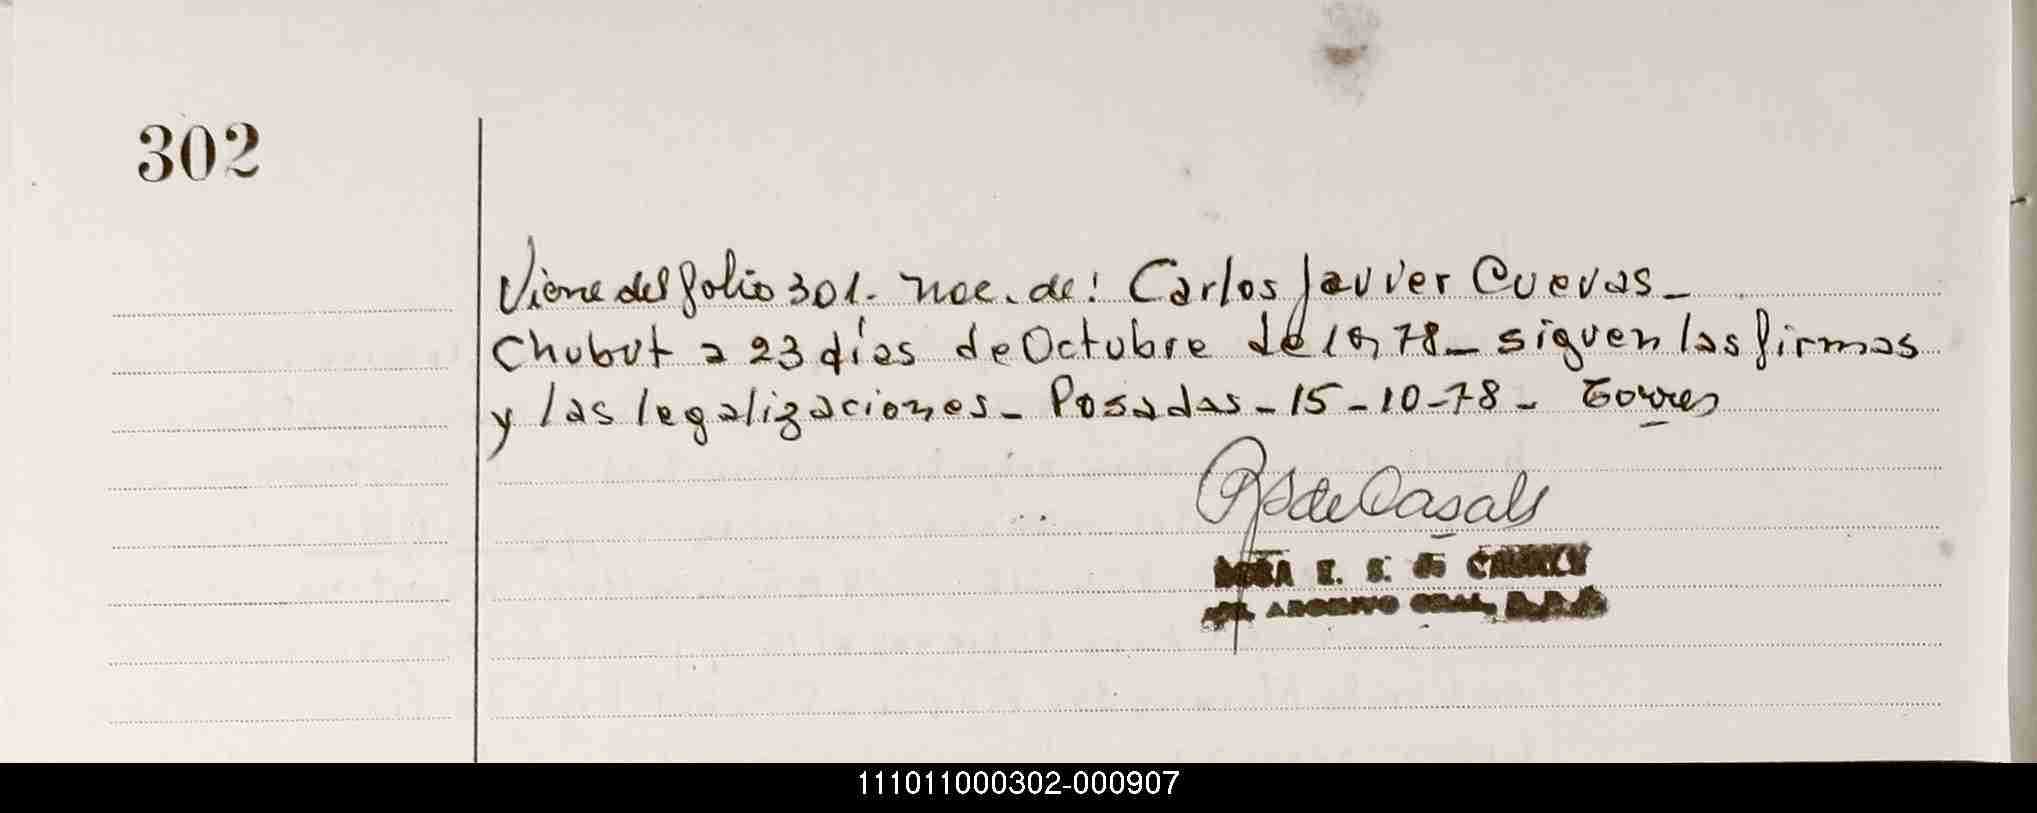 302
Viene del folio 301. Noc. de: Carlos Javier Cuevas_
Chubut a 23 días de Octubre de 1978_ siguen las firmas
y las legalizaciones_ Posadas_15_10_78_ Torres
de Casals
E. S. de
ARCHIVO GRAL.
111011000302-000907